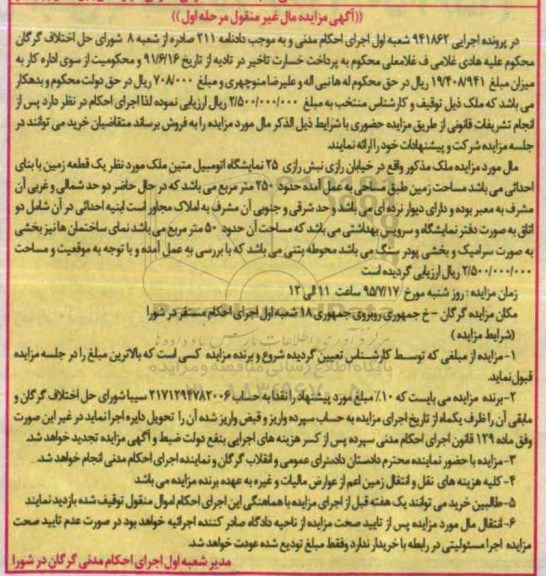 ((آگهی مزایده مال غیر منقول مرحله اول))
در پرونده اجرایی ۹۴۱۸۶۲ شعبه اول اجرای احکام مدنی و به موجب دادنامه ۲۱۱ صادره از شعبه ۸ شورای حل اختلاف گرگان
محکوم علیه هادی غلامی ف غلامعلی محکوم به پرداخت خسارت تاخیر در تادیه از تاریخ ۹۱/۶/۱۶ و محکومیت از سوی اداره کار به
میزان مبلغ ۱۹/۴۰۸/۹۴۱ ریال در حق محکوم له ها نبی اله و علیرضا منوچهری و مبلغ ۷۰۸/۰۰۰ ریال در حق دولت محکوم و بدهکار
می باشد که ملک ذیل توقیف و کارشناس منتخب به مبلغ ۲/۵۰۰/۰۰۰/۰۰۰ ریال ارزیابی نموده لذا اجرای احکام در نظر دارد پس از
انجام تشریفات قانونی از طریق مزایده حضوری با شرایط ذیل الذکر مال مورد مزایده را به فروش برساند متقاضیان خرید می توانند در
جلسه مزایده شرکت و پیشنهادات خود را ارائه نمایند.
مال مورد مزایده ملک مذکور واقع در خیابان رازی نبش رازی ۲۵ نمایشگاه اتومبیل متین ملک مورد نظر یک قطعه زمین با بنای
احداثی می باشد مساحت زمین طبق مساحی به عمل آمده حدود ۲۵۰ متر مربع می باشد که در حال حاضر دو حد شمالی و غربی آن
مشرف به معبر بوده و دارای دیوار نرده ای می باشد و حد شرقی و جنوبی آن مشرف به املاک مجاور است ابنیه احداثی در آن شامل دو
اتاق به صورت دفتر نمایشگاه و سرویس بهداشتی می باشد که مساحت آن حدود ۵۰ متر مربع می باشد نمای ساختمان ها نیز بخشی
به صورت سرامیک و بخشی پودر سنگ می باشد محوطه بتنی می باشد که با بررسی به عمل آمده و با توجه به موقعیت و مساحت
۲/۵۰۰/۰۰۰/۰۰۰ ریال ارزیابی گردیده است
زمان مزایده : روز شنبه مورخ ۹۵/۷/۱۷ ساعت ۱۱ الی ۱۲
مکان مزایده گرگان - خ جمهوری روبروی جمهوری ۱۸ شعبه اول اجرای احکام مستقر در شورا
(شرایط مزایده)
۱- مزایده از مبلغی که توسط کارشناس تعیین گردیده شروع و برنده مزایده کسی است که بالاترین مبلغ را در جلسه مزایده
قبول نماید.
۲- برنده مزایده می بایست که ۱۰٪ مبلغ مورد پیشنهاد را نقدا به حساب ۲۱۷۱۲۹۴۷۸۲۰۰۶ سیبا شورای حل اختلاف گرگان و
مابقی آن را ظرف یکماه از تاریخ اجرای مزایده به حساب سپرده واریز و قبض واریز شده آن را تحویل دایره اجرا نماید در غیر این صورت
وفق ماده ۱۲۹ قانون اجرای احکام مدنی سپرده پس از کسر هزینه های اجرایی بنفع دولت ضبط و آگهی مزایده تجدید خواهد شد.
۳- مزایده با حضور نماینده محترم دادستان دادسرای عمومی و انقلاب گرگان و نماینده اجرای احکام مدنی انجام خواهد شد.
۴- کلیه هزینه های نقل و انتقال زمین اعم از عوارض مالیات و غیره به عهده برنده مزایده می باشد
۵- طالبین خرید می توانند یک هفته قبل از اجرای مزایده با هماهنگی این اجرای احکام اموال منقول توقیف شده بازدید نمایند
۶- انتقال مال مورد مزایده پس از تایید صحت مزایده از ناحیه دادگاه صادر کننده اجرائیه خواهد بود در صورت عدم تایید صحت
مزایده اجرا مسئولیتی در رابطه با خریدار ندارد وفقط مبلغ تودیع شده عودت خواهد شد.
مدیر شعبه اول اجرای احکام مدنی گرگان در شورا